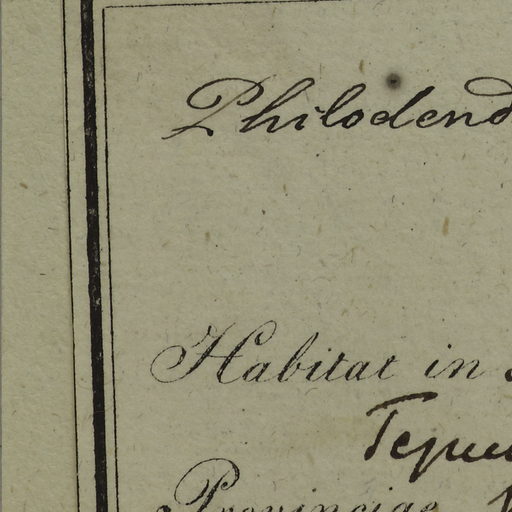 Philodend
Habitat in
Provinciae